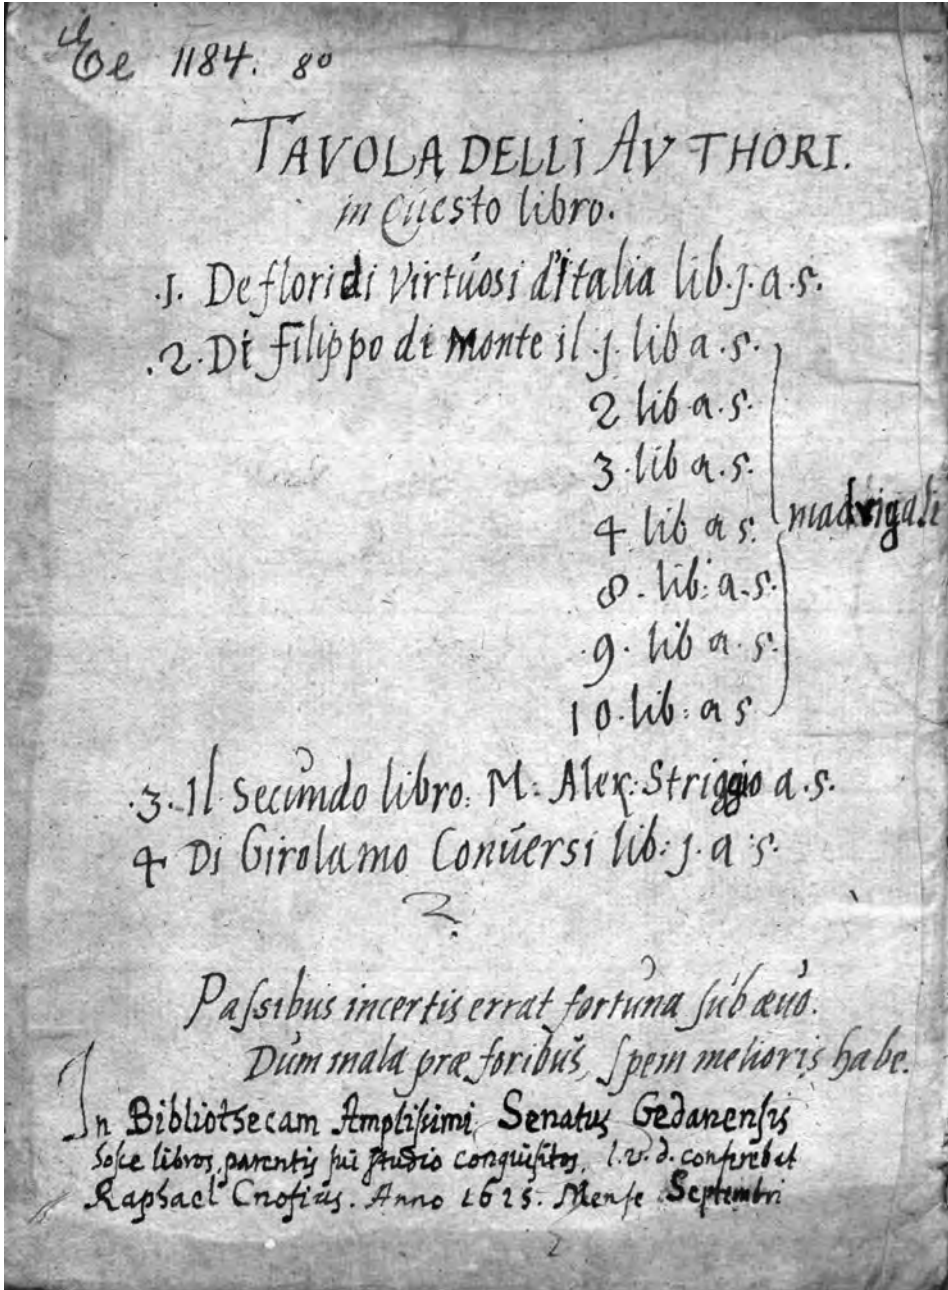 Ee 1184. 8o
TAVOLA DELLI AVTHORI.
in Questo libro.
.1. De floridi virtuosi d'Italia lib. j. a. 5.
.2. Di Filippo di Monte il .j. lib a. 5.
2 lib a. 5.
3. lib a. 5.
4 lib a 5.
madrigali
8. lib: a. 5.
.9. lib a. 5.
10. lib: a 5
.3. Il Secundo libro: M: Alex: Striggio a. 5.
4 Di Girolamo Conversi lib: j. a 5.
Paſsibus incertis errat fortuna ſub ævo.
Dum mala præ foribus, ſpem melioris habe.
In Bibliothecam Ampliſsimi Senatus Gedanenſis
hosce libros, parentis ſui ſtudio conquiſitos, l. v. d. conferebat
Raphael Cnofius. Anno 1615. Menſe Septembri